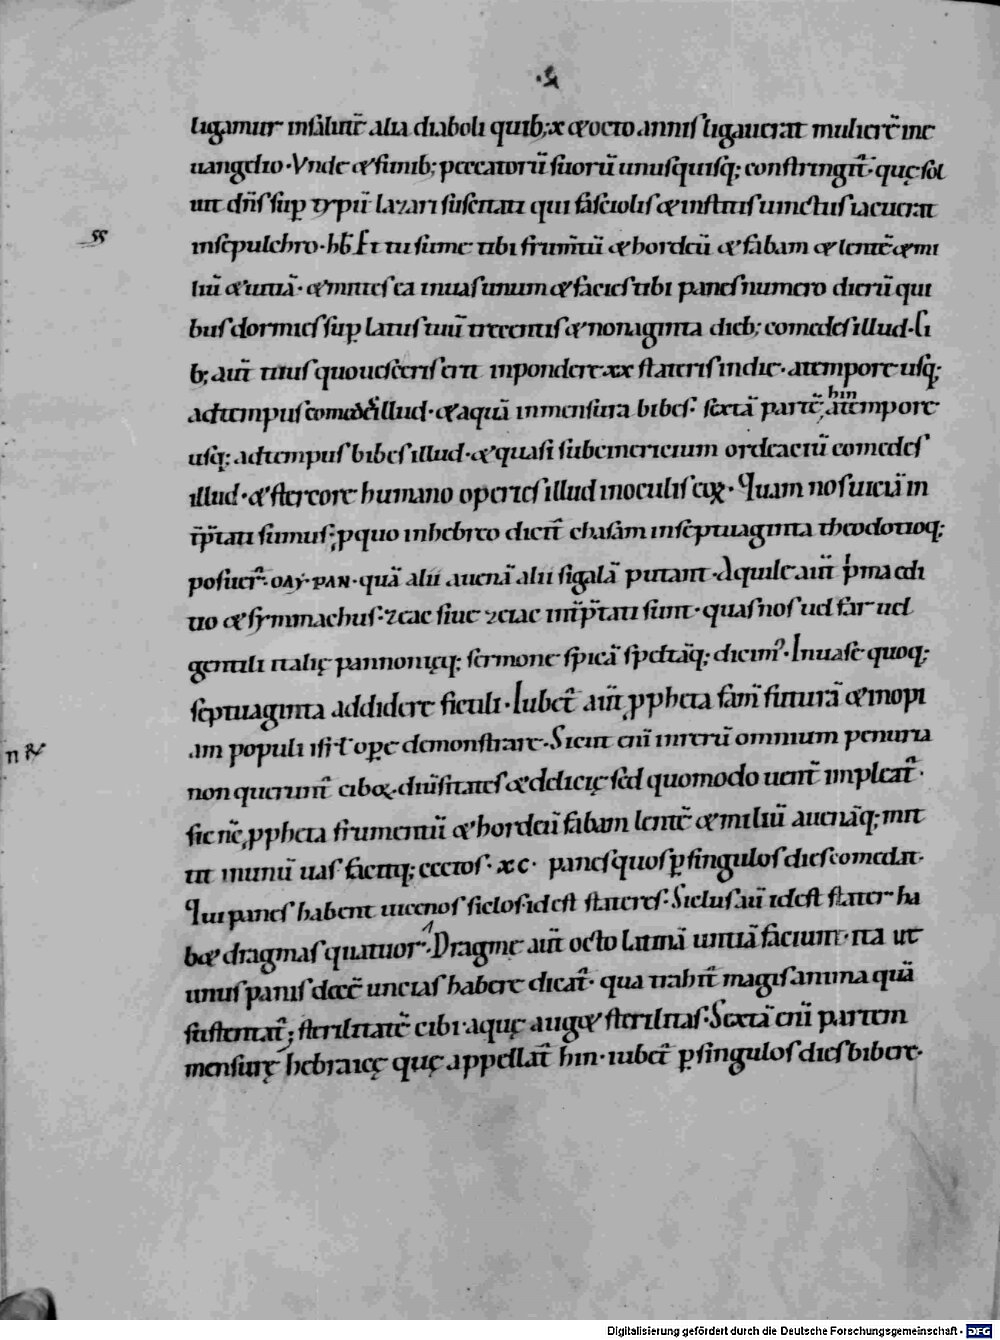 ligamur insalutar̄ alia diaboli quib; x & octo annis ligauerat mulierē in e
uangelio. Vnde & funib; peccatorū suorū unusquisq; constringit̄. quę sol
uit dn̄s sup̱ typū lazari suscitati qui fasciolis & institis uinctus iacuerat
in sepulchro. Et tu sume tibi frumtū & hordeū & fabam & lentē & mi
liū & uitiā. & mittes ea in uas unum & facies tibi panes numero dierū qui
bus dormies sup̱ latus tuū trecentis & nonaginta dieb; comedes illud. Ci
b; aut̄ tuus quo uesceris erit in pondere xx stateris in die. a tempore usq;
ad tempus comedes illud. & aquā in mensura bibes. sextā partē hin a tempore
usq; ad tempus bibes illud. & quasi subcinericium ordeaciū comedes
illud. & stercore humano operies illud in oculis eoꝝ. Quam nos uiciā in
tp̄tati sumus; p quo in hebreo dicit̄ chasam in septuaginta theodotioq;
posuer̄. ΟΛΥΡΑΝ. quā alii auenā alii sigalā putant. Aquile aut̄ prima edi
tio & symmachus. zeas siue zeias int̄p̄tati sunt. quas nos uel far uel
gentili italię pannonięq; sermone spicā speltāq; dicim᾿. In uase quoq;
septuaginta addidere fictili. Iubet̄ aut̄ p̱pheta famē futurā & inopi
am populi isrl̄ ope demonstrare. Sicut enī in rerū omnium penuria
non querunt̄ ciboꝝ diūsitates & delicię sed quomodo uent̄ impleat̄.
sic nc̄ p̱pheta frumentū & hordeū fabam lentē & miliū auenāq; mit
tit in unū uas facitq; ccctos. xc. panes quos p̱ singulos dies comedit.
Qui panes habent uicenos siclos id est stateres. Siclus aū id est stater ha
bet dragmas quatuor. Dragmę aut̄ octo latinā untiā faciunt. ita ut
unus panis decē uncias habere dicat̄. qua trahit̄ magis anima quā
sustentat̄; sterilitatē cibi aquę auget sterilitas. Sextā enī partem
mensurę hebraicę quę appellat̄ hin. iubet̄ p̱ singulos dies bibere.